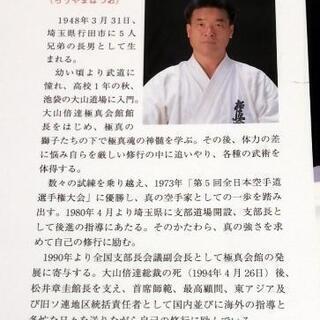 (ろうやまはつお)
1948年3月31日、
埼玉県行田市に5人
兄弟の長男として生
まれる。
幼い頃より武道に
憧れ、高校1年の秋、
池袋の大山道場に入門。
大山倍達極真会館館
長をはじめ、極真の
獅子たちの下で極真魂の神髄を学ぶ。その後、体力の差
に悩み自らを厳しい修行の中に追いやり、各種の武術を
体得する。
数々の試練を乗り越え、1973年「第5回全日本空手道
選手権大会」に優勝し、真の空手家としての一歩を踏み
出す。1980年4月より埼玉県に支部道場開設、支部長とし
て後進の指導にあたる。そのかたわら、真の強さを求め
て自己の修行に励む。
1990年より全国支部長会議副会長として極真会館の発
展に寄与する。大山倍達総裁の死(1994年4月26日)後、
松井章圭館長を支え、首席師範、最高顧問、東アジア及
び旧ソ連地区統括責任者として国内並びに海外の指導と
多忙な日々を送りながら自己の修行に励んでいる
極真会